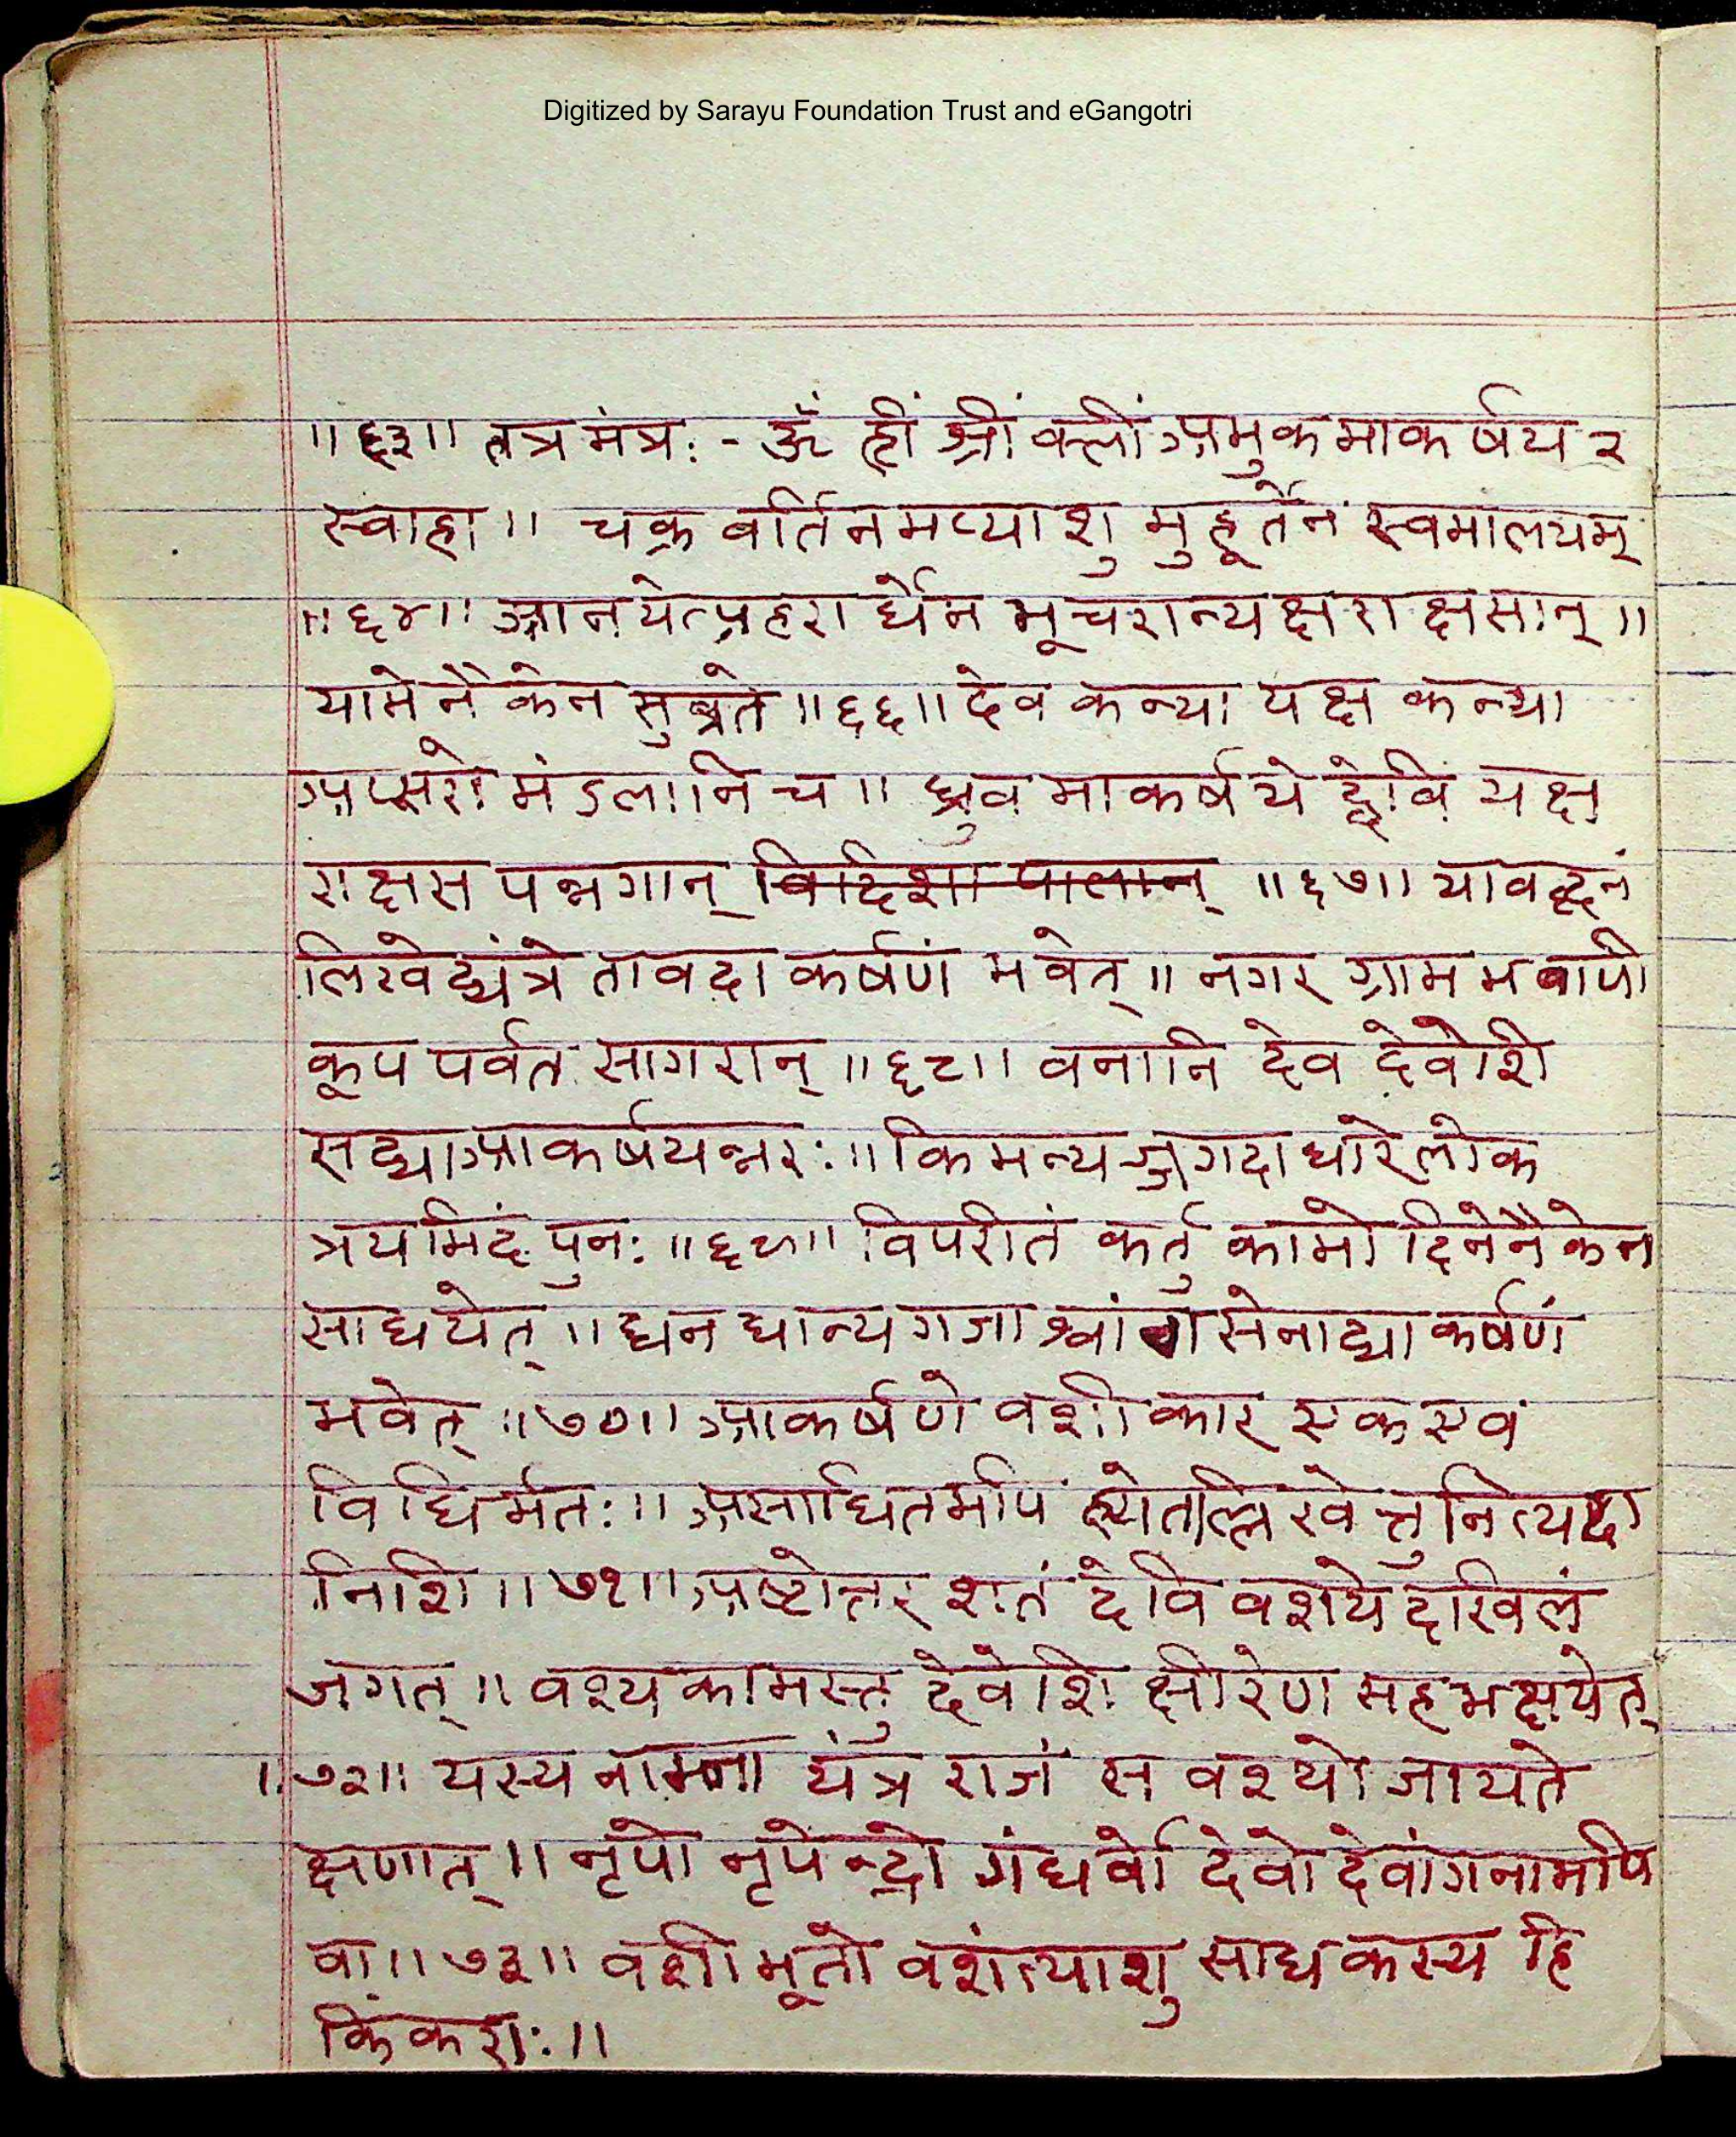 Digitized by Sarayu Foundation Trust and eGangotri
॥६३॥ तत्र मंत्रः - ॐ ह्रीं श्रीं क्लीं अमुकमाकर्षय २
स्वाहा ॥ चक्रवर्तिनमप्याशु मुहूर्तेन स्वमालयम्
॥६४॥ आनयेत्प्रहरार्धेन भूचरान्यक्षराक्षसान् ॥
यामेनैकेन सुव्रते ॥६६॥ देवकन्या यक्षकन्या
अप्सरोमंडलानि च ॥ ध्रुवमाकर्षयेद्देवि यक्ष
राक्षस पन्नगान् विदिशा पालान् ॥६७॥ यावद्दिनं
लिखेद्यंत्रे तावदाकर्षणं भवेत् ॥ नगर ग्राम म वापी
कूप पर्वत सागरान् ॥६८॥ वनानि देव देवेशि
सद्या आकर्षयन्नरः ॥ किमन्यज्जगदाधारे लोक
त्रयमिदं पुनः ॥६९॥ विपरीतं कर्तु कामो दिनेनैकेन
साधयेत् ॥ धन धान्य गजाश्वां वा सेनाद्याकर्षणं
भवेत् ॥७०॥ आकर्षणे वशीकार एक एव
विधिर्मतः ॥ असाधितमपि ह्येतल्लिखेत्तु नित्यदा
निशि ॥७१॥ अष्टोत्तर शतं देवि वशयेदखिलं
जगत् ॥ वश्यकामस्तु देवेशि क्षीरेण सह भक्षयेत्
॥७२॥ यस्य नाम्ना यंत्र राजं स वश्यो जायते
क्षणात् ॥ नृपो नृपेन्द्रो गंधर्वो देवो देवांगनामपि
वा ॥७३॥ वशीभूतो वशंत्याशु साधकस्य हि
किंकराः ॥